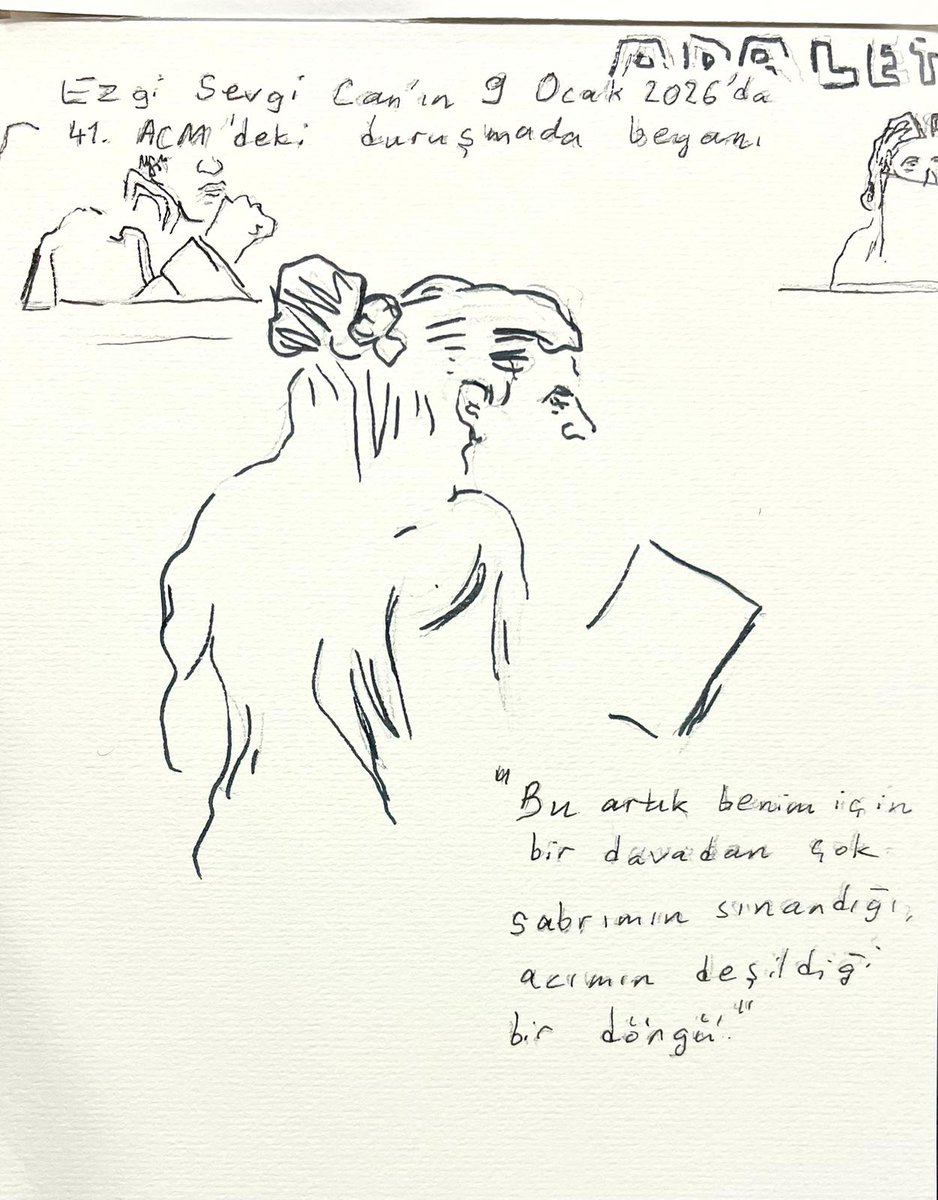 ADALET
Ezgi Sevgi Can'ın 9 Ocak 2026'da
41. ACM'deki duruşmada beyanı
"Bu artık benim için
bir davadan çok
sabrımın sınandığı,
acımın deşildiği
bir döngü."